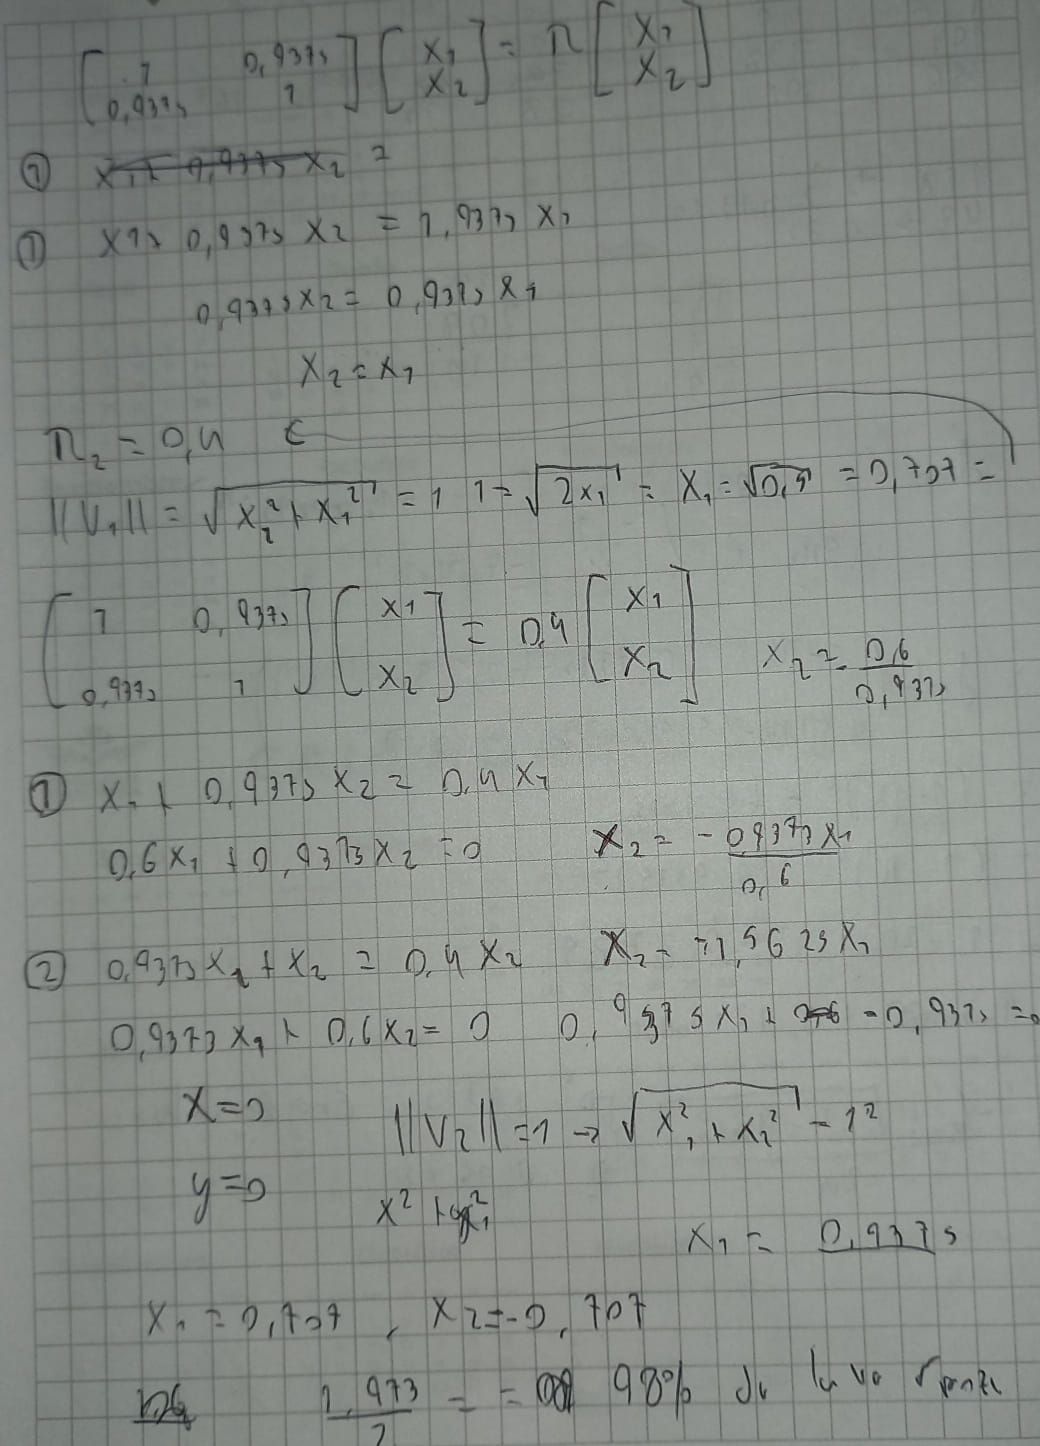 [1 0,9375; 0,9375 1] [x1; x2] = λ [x1; x2]
① x1 + 0,9375 x2 =
① x1 + 0,9375 x2 = 1,9375 x1
0,9375 x2 = 0,9375 x1
x2 = x1
λ2 = 0,4 ←
||V1|| = √(x2² + x1²) = 1 1 = √(2x1) = x1 = √0,5 = 0,707 =
[1 0,9375; 0,9375 1] [x1; x2] = 0,4 [x1; x2] x2 = -0,6/0,9375
① x1 + 0,9375 x2 = 0,4 x1
0,6 x1 + 0,9375 x2 = 0 x2 = -0,9375 x1/0,6
② 0,9375 x1 + x2 = 0,4 x2 x2 = -1,5625 x1
0,9375 x1 + 0,6 x2 = 0 0,9375 x1 + -0,9375 = 0
x = 0 ||V2|| = 1 → √(x1² + x2²) = 1²
y = 0 x² + x1²
x1 = 0,9375
x1 = 0,707, x2 = -0,707
1,973/2 = = 98%